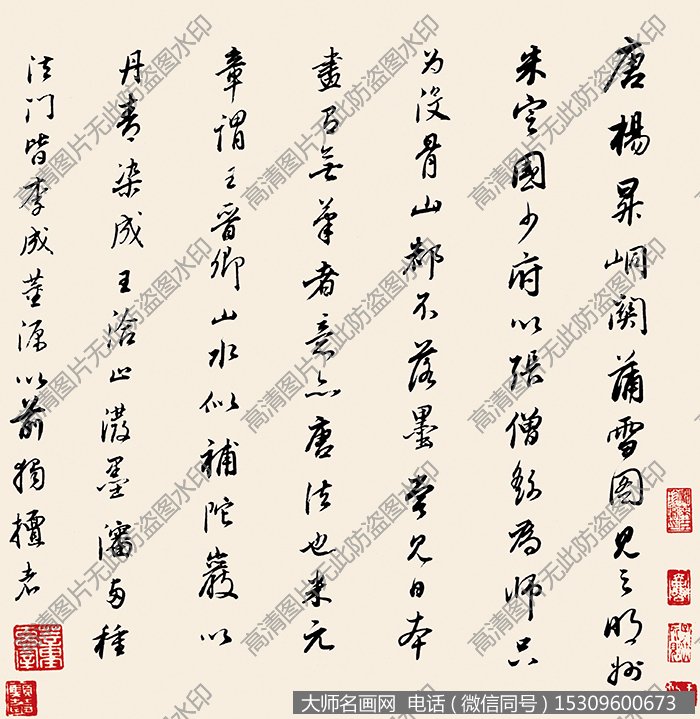 唐楊昇峒關蒲雪图见之明州
朱定國少府以張僧繇為师只
为没骨山都不落墨嘗见日本
畫有無筆者意亦唐法也米元
章謂王晉卿山水似補陀巖以
丹青染成王洽止潑墨瀋两種
法门皆李成董源以前獨擅者
高清图片无此防盗图水印
大师名画网 电话（微信同号）15309600673